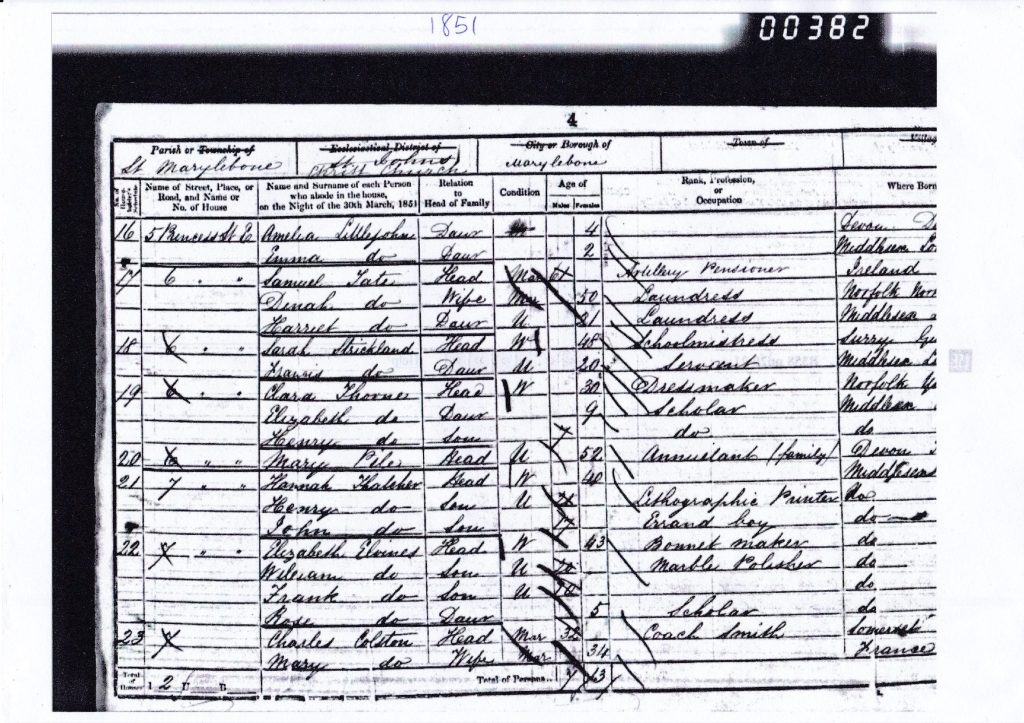 1851
00382
4
Parish or Township of Ecclesiastical District of City or Borough of Town of Village
St Marylebone St Johns Christ Church Marylebone
Name of Street, Place, or Road, and Name or No. of House
Name and Surname of each Person who abode in the house, on the Night of the 30th March, 1851
Relation to Head of Family
Condition
Age of Males Females
Rank, Profession, or Occupation
Where Born
16 5 Princess St Amelia Littlejohn Daur 4 Devon
Emma do Daur 2 Middlesex
17 6 " " Samuel Tate Head Mar 61 Artillery Pensioner Ireland
Dinah do Wife Mar 50 Laundress Norfolk
Harriet do Daur U 21 Laundress Middlesex
18 6 " " Sarah Strickland Head W 48 Schoolmistress Surry
Francis do Daur U 20 Servant Middlesex
19 6 " " Clara Thorne Head W 30 Dressmaker Norfolk
Elizabeth do Daur 9 Scholar Middlesex
Henry do Son do do
20 6 " " Mary Pile Head U 52 Annuitant (family) Devon
21 7 " " Hannah Thatcher Head W 40 Middlesex
Henry do Son U Lithographic Printer do
John do Son Errand boy do
22 7 " " Elizabeth Head W 43 Bonnet maker do
William do Son U 20 Marble Polisher do
Frank do Son U do
Rose do Daur 5 Scholar do
23 Charles Colston Head Mar 32 Coach Smith Somerset
Mary do Wife Mar 34 France
Total of Houses 1 2 U B Total of Persons.. 7 13